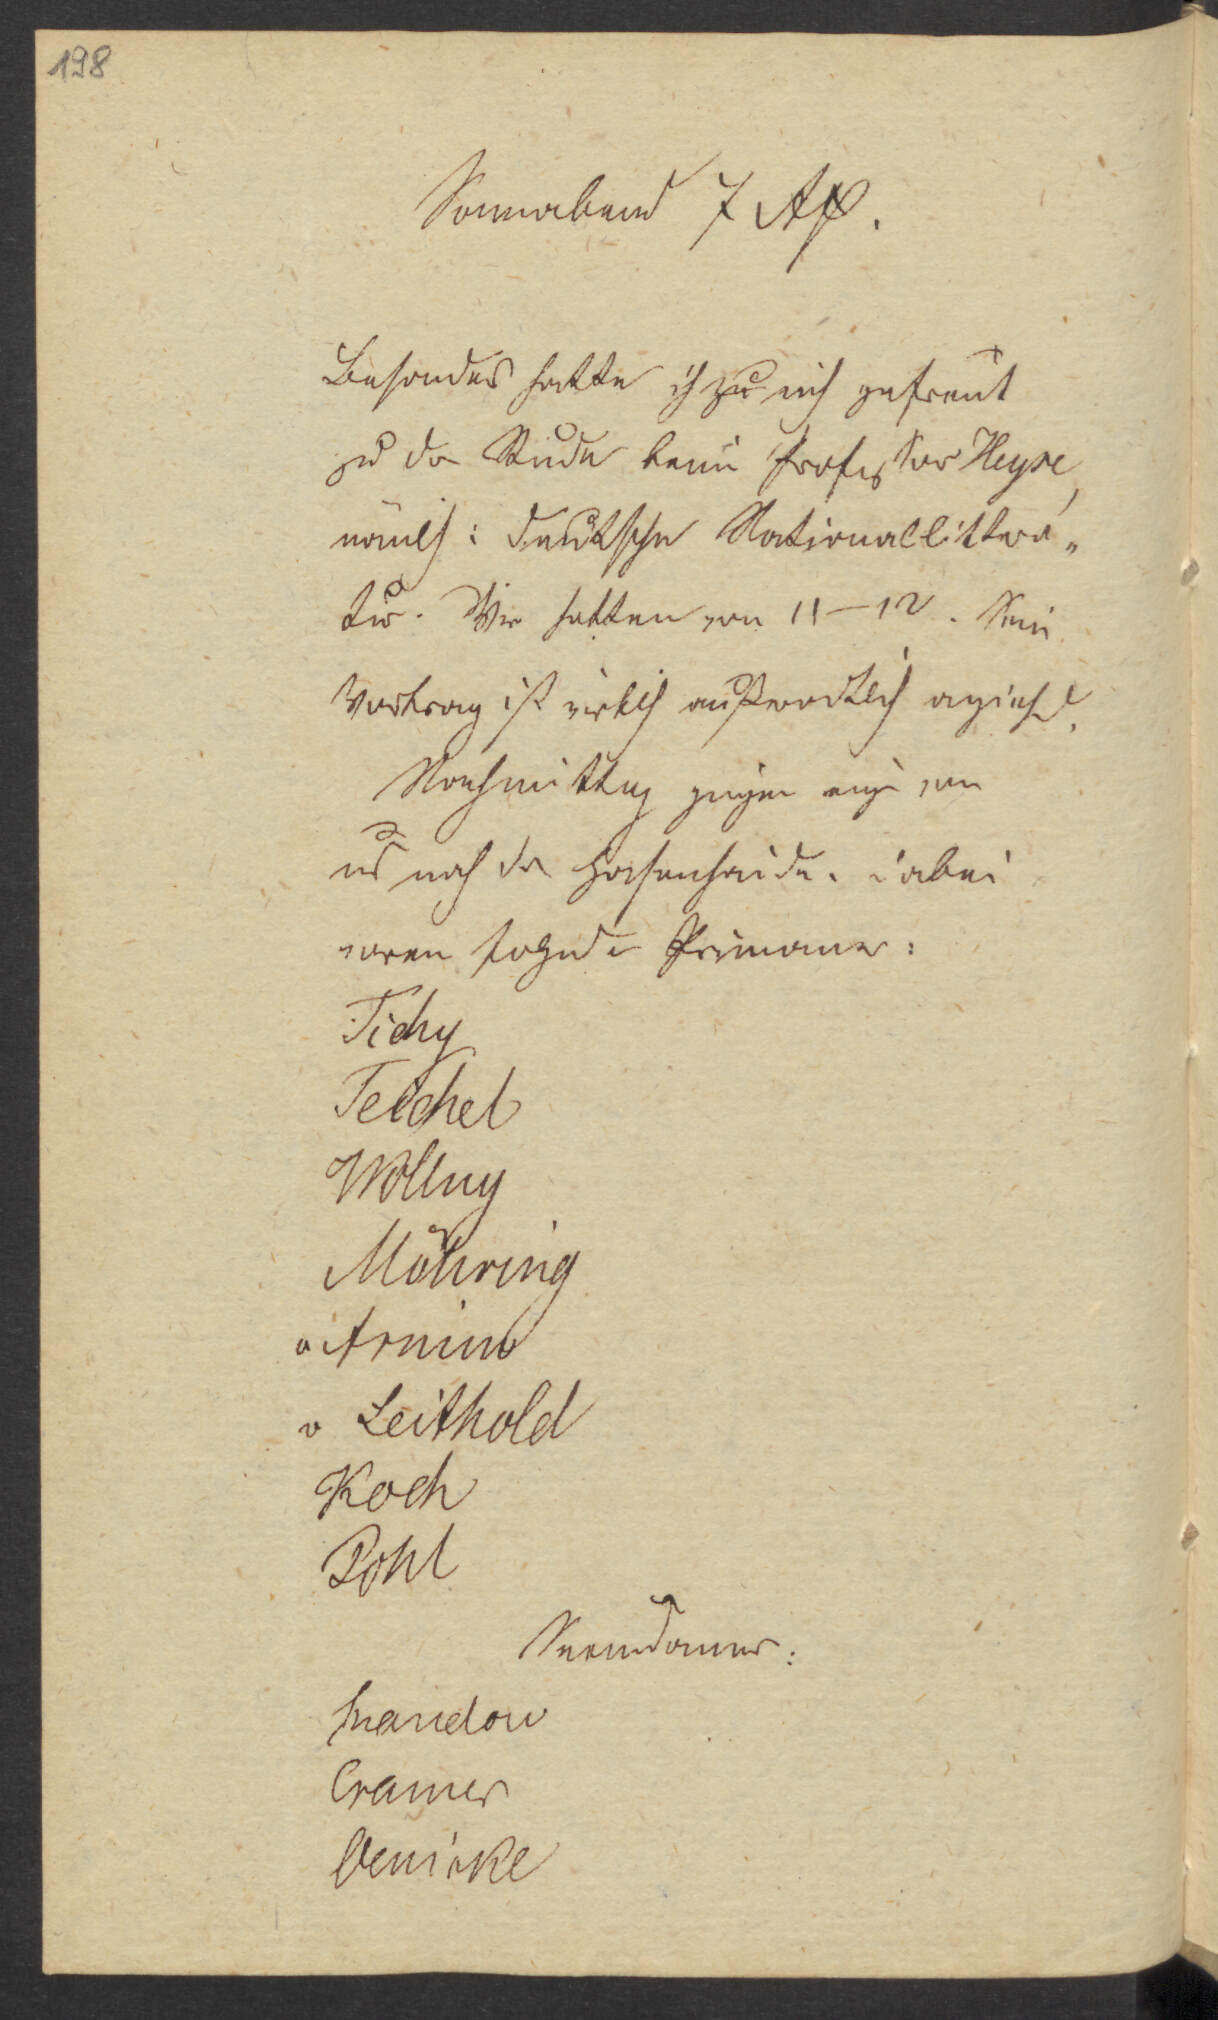 198
Sonnabend 7 Ap.
Besonders hatte ich mich gefreut
zu der Stunde beim Professor Heyse,
nämlich: deutsche Nationallittera„
tur. Wir hatten von 11-12. Sein
Vortrag ist wirklich außerordtlich anziehd.
Nachmittag gingen einige von
uns nach der Hasenhaide. dabei
waren folgende Primaner:
Tichy
Teichel
Wollny
Möhring
v Arnim
v Leithold
Koch
Pohl
Secundaner:
Mandow
Cramer
Benicke